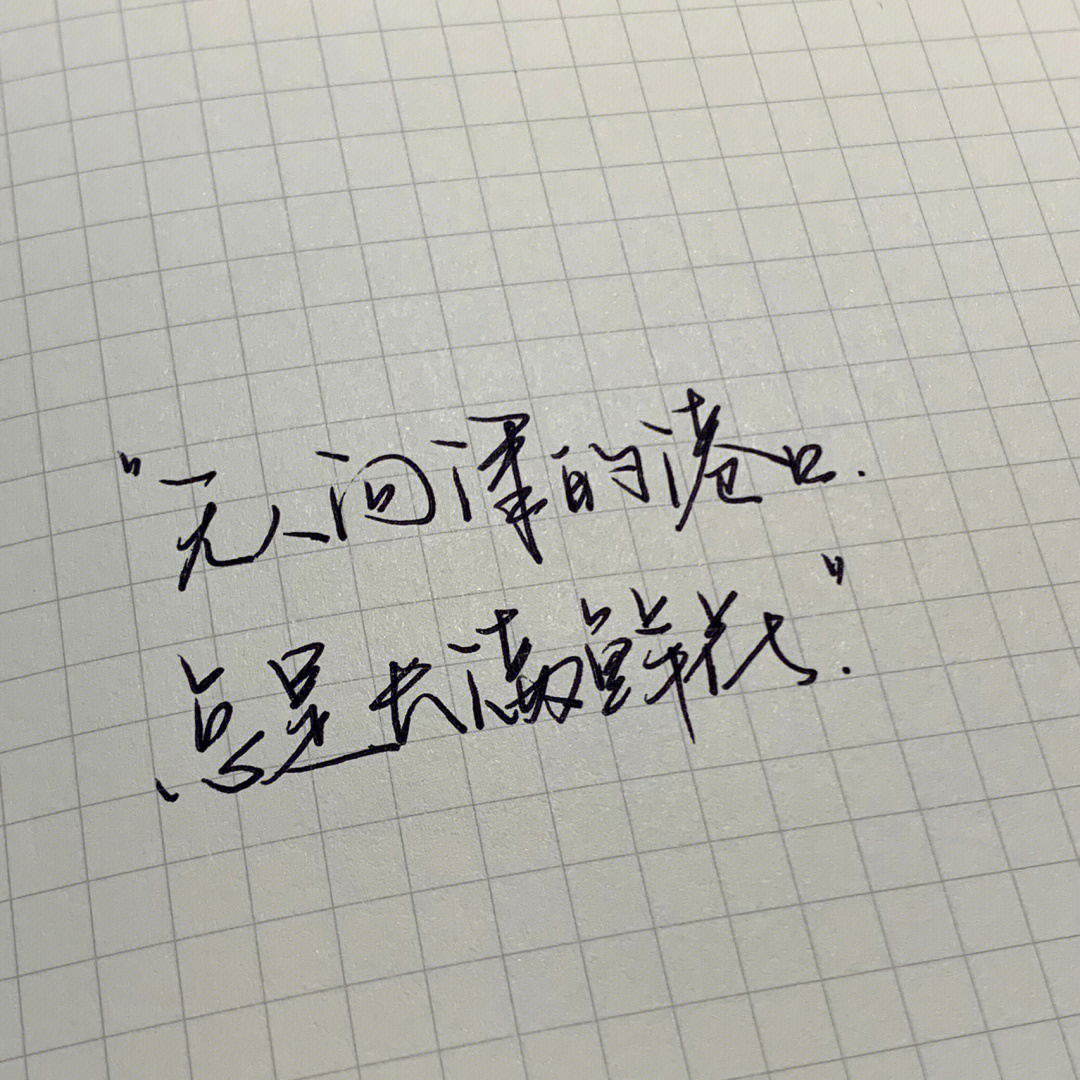 "无人问津的港口.
总是长满鲜花."